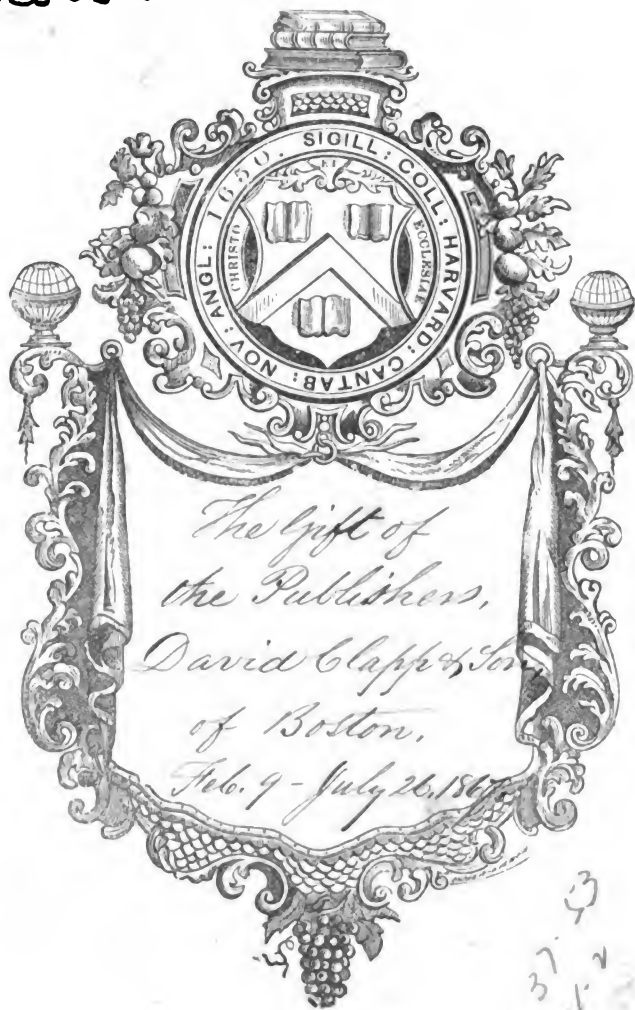 SIGILL: COLL: HARVARD: CANTAB: NOV: ANGL: 1650.
ET
CHRISTO
ECCLESIAE
The Gift of
the Publishers,
David Clapp & Son,
of Boston,
Feb. 9 - July 26. 1867.